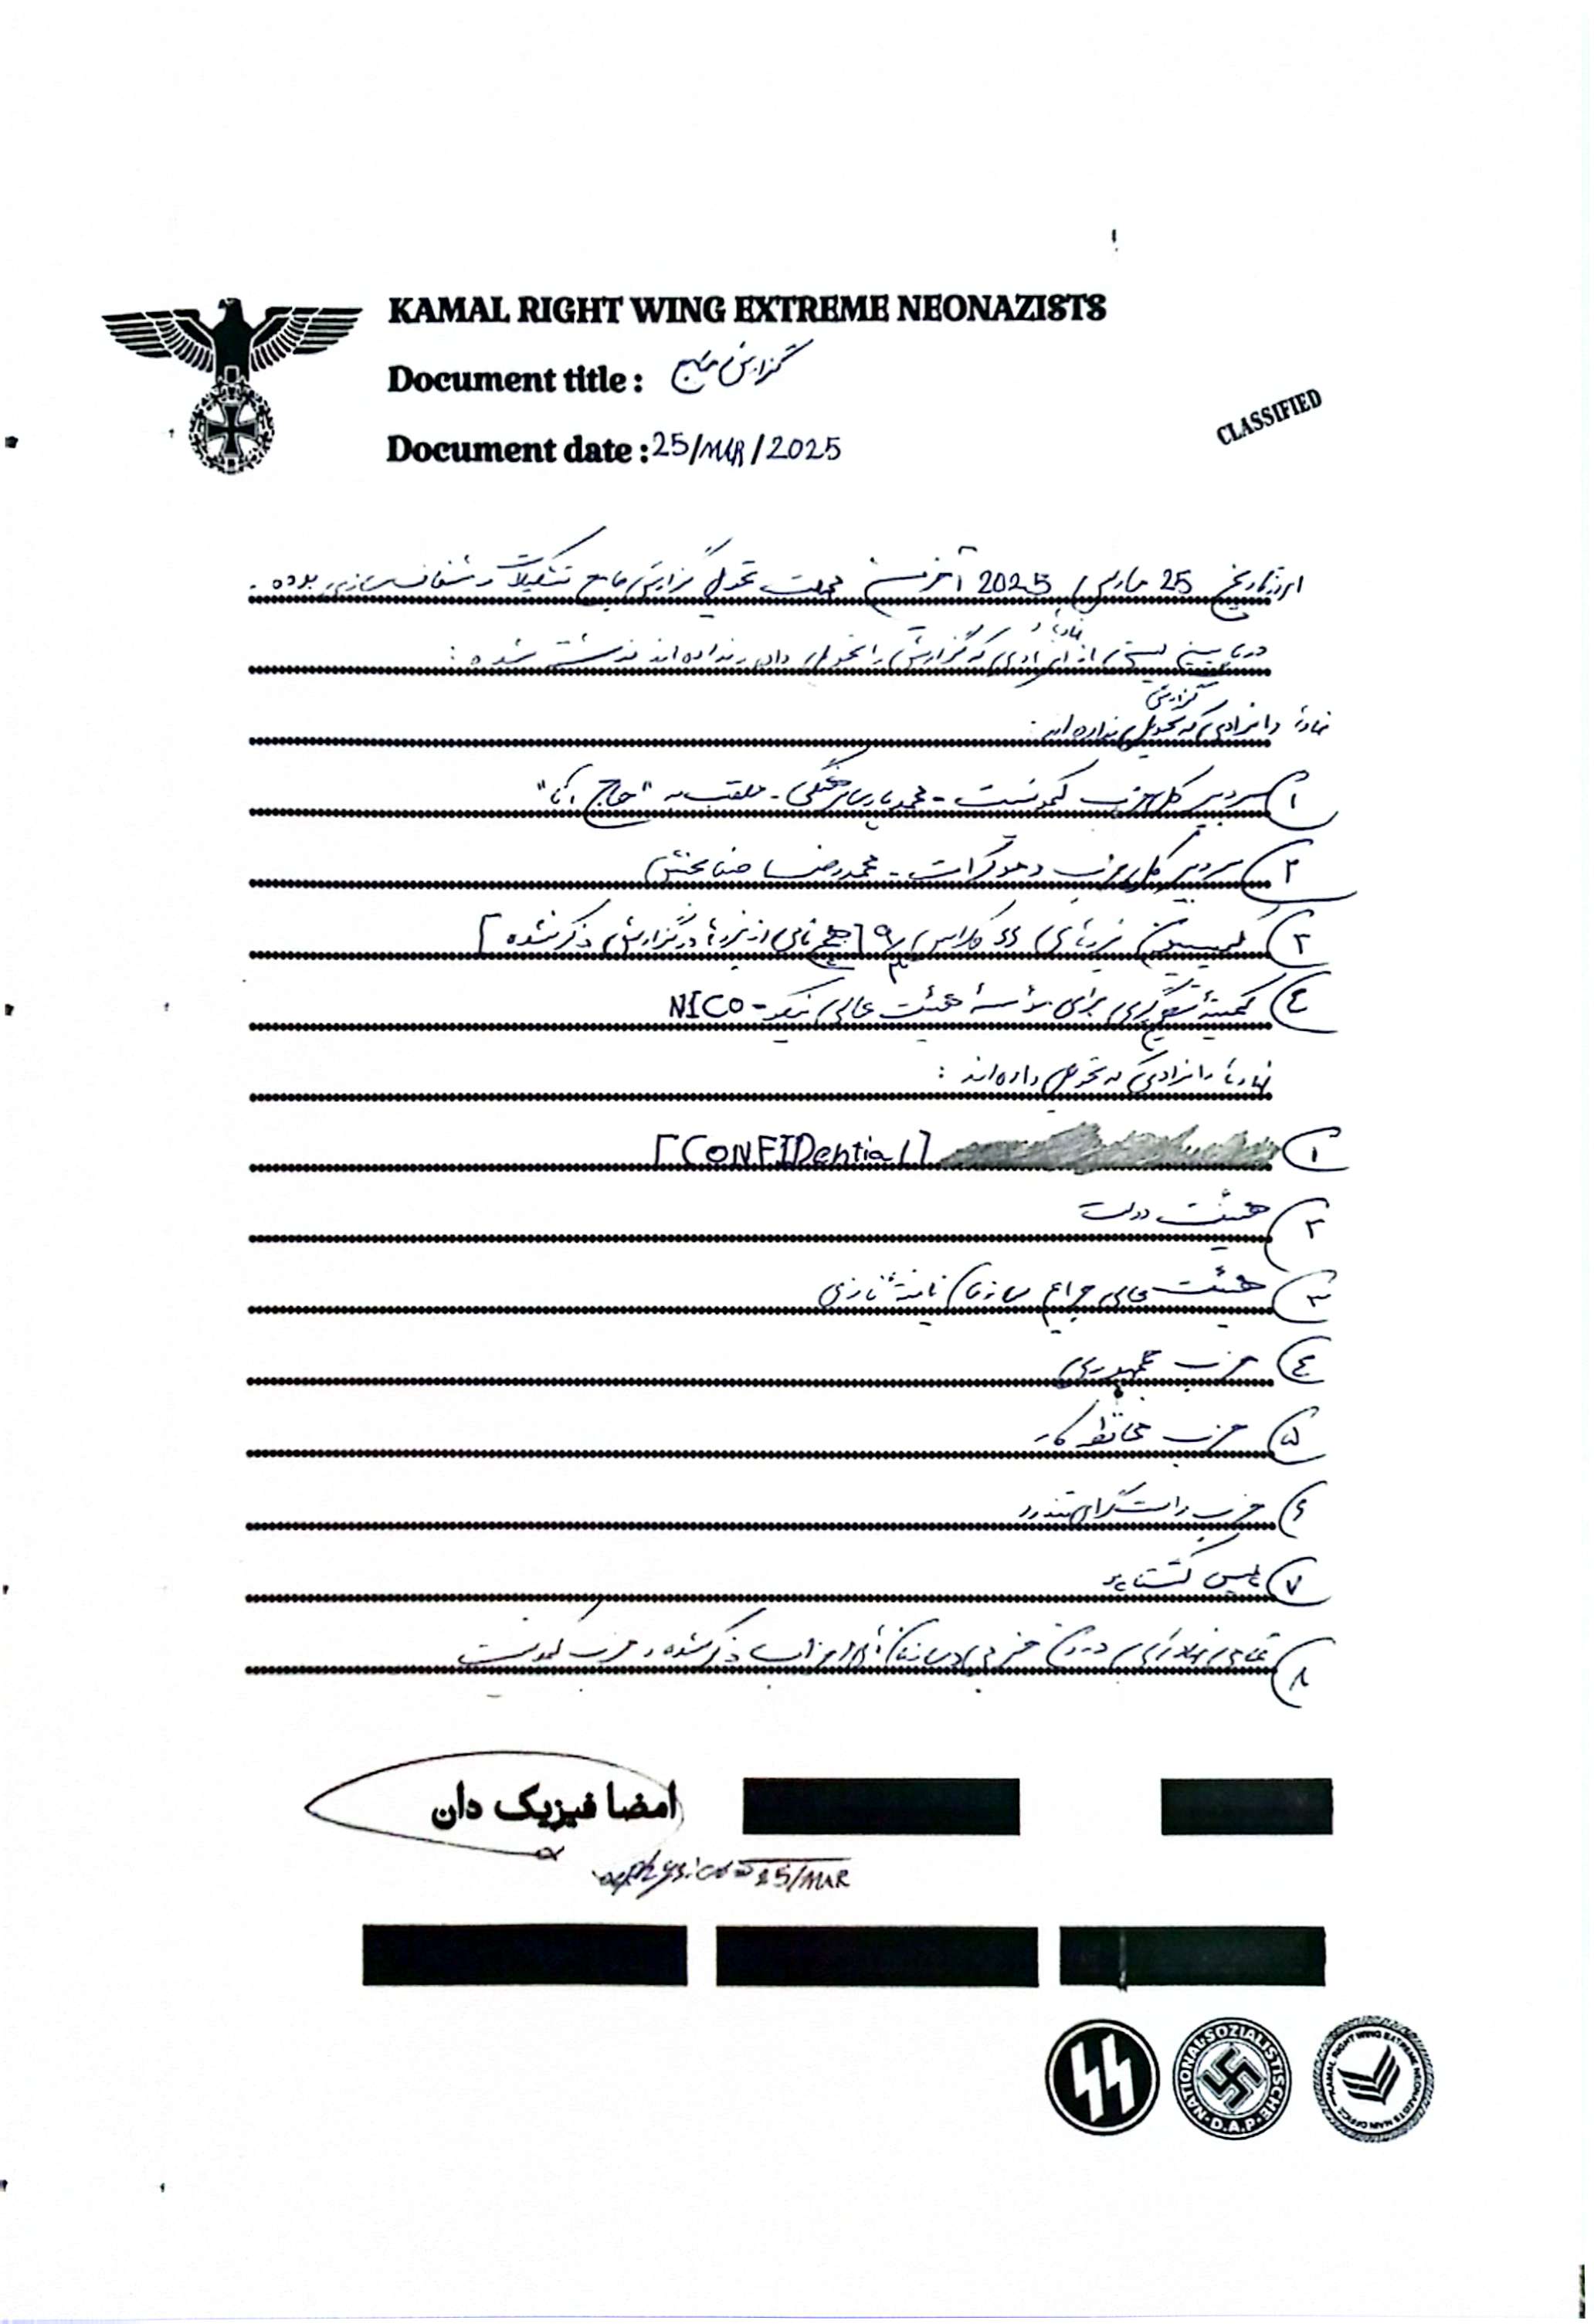 KAMAL RIGHT WING EXTREME NEONAZISTS
Document title : گزارش جامع
Document date : 25/MAR/2025
CLASSIFIED
امروز تاریخ 25 مارس 2025 آخرین مهلت تحویل گزارش جامع تشکیلات و شفاف سازی بوده.
در پایین لیستی از نهادها و افرادی که گزارش را تحویل داده و نداده اند نوشته شده :
نهادها و افرادی که گزارش تحویل نداده اند :
۱) سردبیر کل حزب کمونیست - محمد پارسا - ملقب به "حاج آقا"
۲) سردبیر کل حزب دموکرات - محمدرضا
۳) کمیسیون نیروهای SS کلاس ۹/۳ [هیچ نامی از نیروها در گزارش ذکر نشده]
٤) کمیتهٔ برای مؤسسهٔ هیئت عالی نیکو - NICO
نهادها و افرادی که تحویل داده اند :
۱) [CONFIDential]
۲) هیئت دولت
۳) هیئت عالی سازمان نازی
٤) حزب جمهوری
۵) حزب محافظه کار
۶) حزب راستگرای تندرو
۷) پلیس گشتاپو
۸) تمامی نهادهای درون حزبی و سازمان های احزاب ذکر شده و حزب کمونیست
امضا فیزیک دان
25/MAR
NATIONAL-SOZIALISTISCHE D.A.P.
KAMAL RIGHT WING EXTREME NEONAZISTS MAIN OFFICE